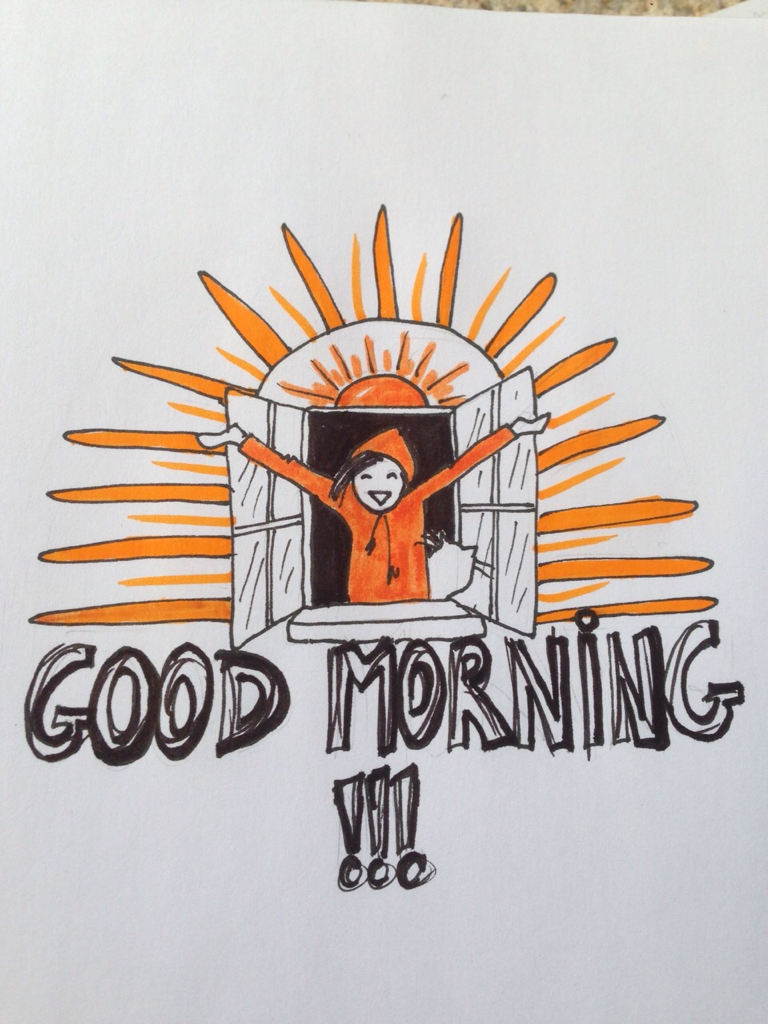 GOOD MORNiNG
!!!